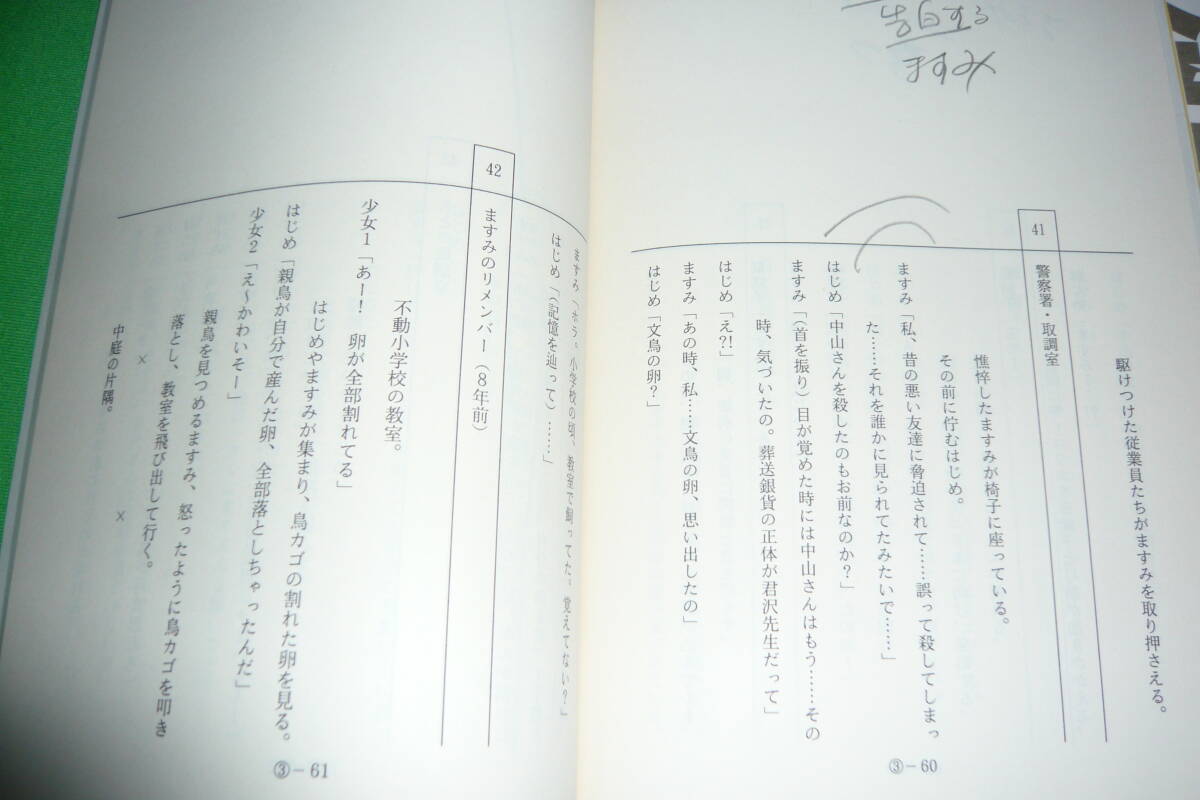 告白する
ますみ
駆けつけた従業員たちがますみを取り押さえる。
41
警察署・取調室
憔悴したますみが椅子に座っている。
その前に佇むはじめ。
ますみ「私、昔の悪い友達に脅迫されて……誤って殺してしまっ
た……それを誰かに見られてたみたいで……」
はじめ「中山さんを殺したのもお前なのか？」
ますみ「（首を振り）目が覚めた時には中山さんはもう……その
時、気づいたの。葬送銀貨の正体が君沢先生だって」
はじめ「え？！」
ますみ「あの時、私……文鳥の卵、思い出したの」
はじめ「文鳥の卵？」
③－60
ますみ「ホラ。小学校の頃、教室で飼ってた。覚えてない？」
はじめ「（記憶を辿って）……」
42
ますみのリメンバー（８年前）
不動小学校の教室。
少女１「あー！　卵が全部割れてる」
はじめやますみが集まり、鳥カゴの割れた卵を見る。
はじめ「親鳥が自分で産んだ卵、全部落としちゃったんだ」
少女２「え～かわいそー」
親鳥を見つめるますみ、怒ったように鳥カゴを叩き
落とし、教室を飛び出して行く。
×　　×
中庭の片隅。
③－61